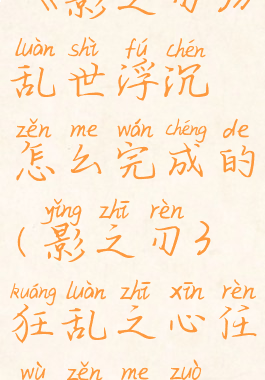 luàn shì fú chén
乱世浮沉
zěn me wán chéng de
怎么完成的
yǐng zhī rèn
(影之刃3
kuáng luàn zhī xīn rèn
狂乱之心任
wù zěn me zuò